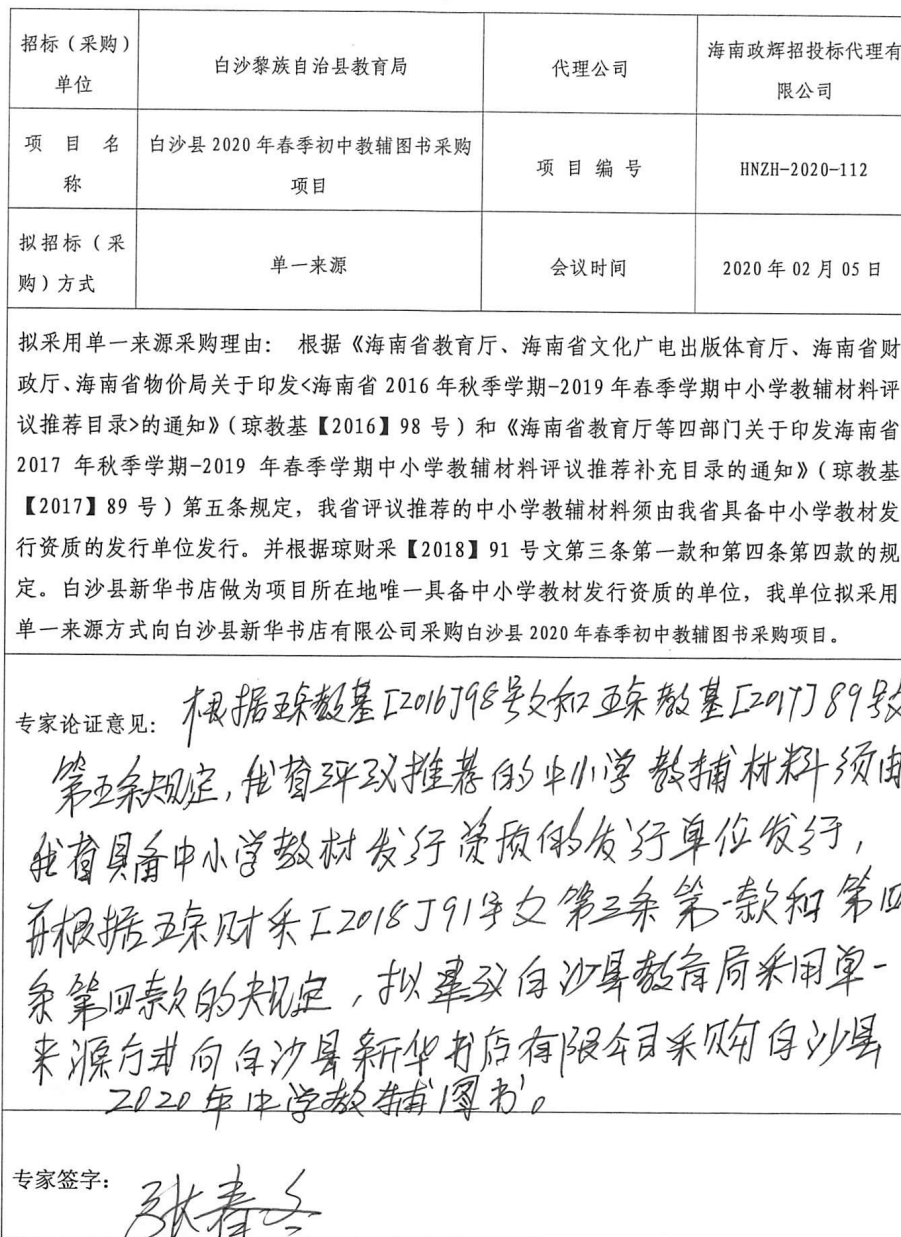 招标（采购）
单位
白沙黎族自治县教育局
代理公司
海南政辉招投标代理有
限公司
项 目 名
称
白沙县 2020 年春季初中教辅图书采购
项目
项 目 编 号
HNZH-2020-112
拟招标（采
购）方式
单一来源
会议时间
2020 年 02 月 05 日
拟采用单一来源采购理由： 根据《海南省教育厅、海南省文化广电出版体育厅、海南省财
政厅、海南省物价局关于印发<海南省 2016 年秋季学期-2019 年春季学期中小学教辅材料评
议推荐目录>的通知》（琼教基【2016】98 号）和《海南省教育厅等四部门关于印发海南省
2017 年秋季学期-2019 年春季学期中小学教辅材料评议推荐补充目录的通知》（琼教基
【2017】89 号）第五条规定，我省评议推荐的中小学教辅材料须由我省具备中小学教材发
行资质的发行单位发行。并根据琼财采【2018】91 号文第三条第一款和第四条第四款的规
定。白沙县新华书店做为项目所在地唯一具备中小学教材发行资质的单位，我单位拟采用
单一来源方式向白沙县新华书店有限公司采购白沙县 2020 年春季初中教辅图书采购项目。
专家论证意见： 根据琼教基[2016]98号文和琼教基[2017]89号文
第五条规定，我省评议推荐的中小学教辅材料须由
我省具备中小学教材发行资质的发行单位发行，
并根据琼财采[2018]91号文第三条第一款和第四
条第四款的规定，拟建议白沙县教育局采用单一
来源方式向白沙县新华书店有限公司采购白沙县
2020年中学教辅图书。
专家签字： 张春冬